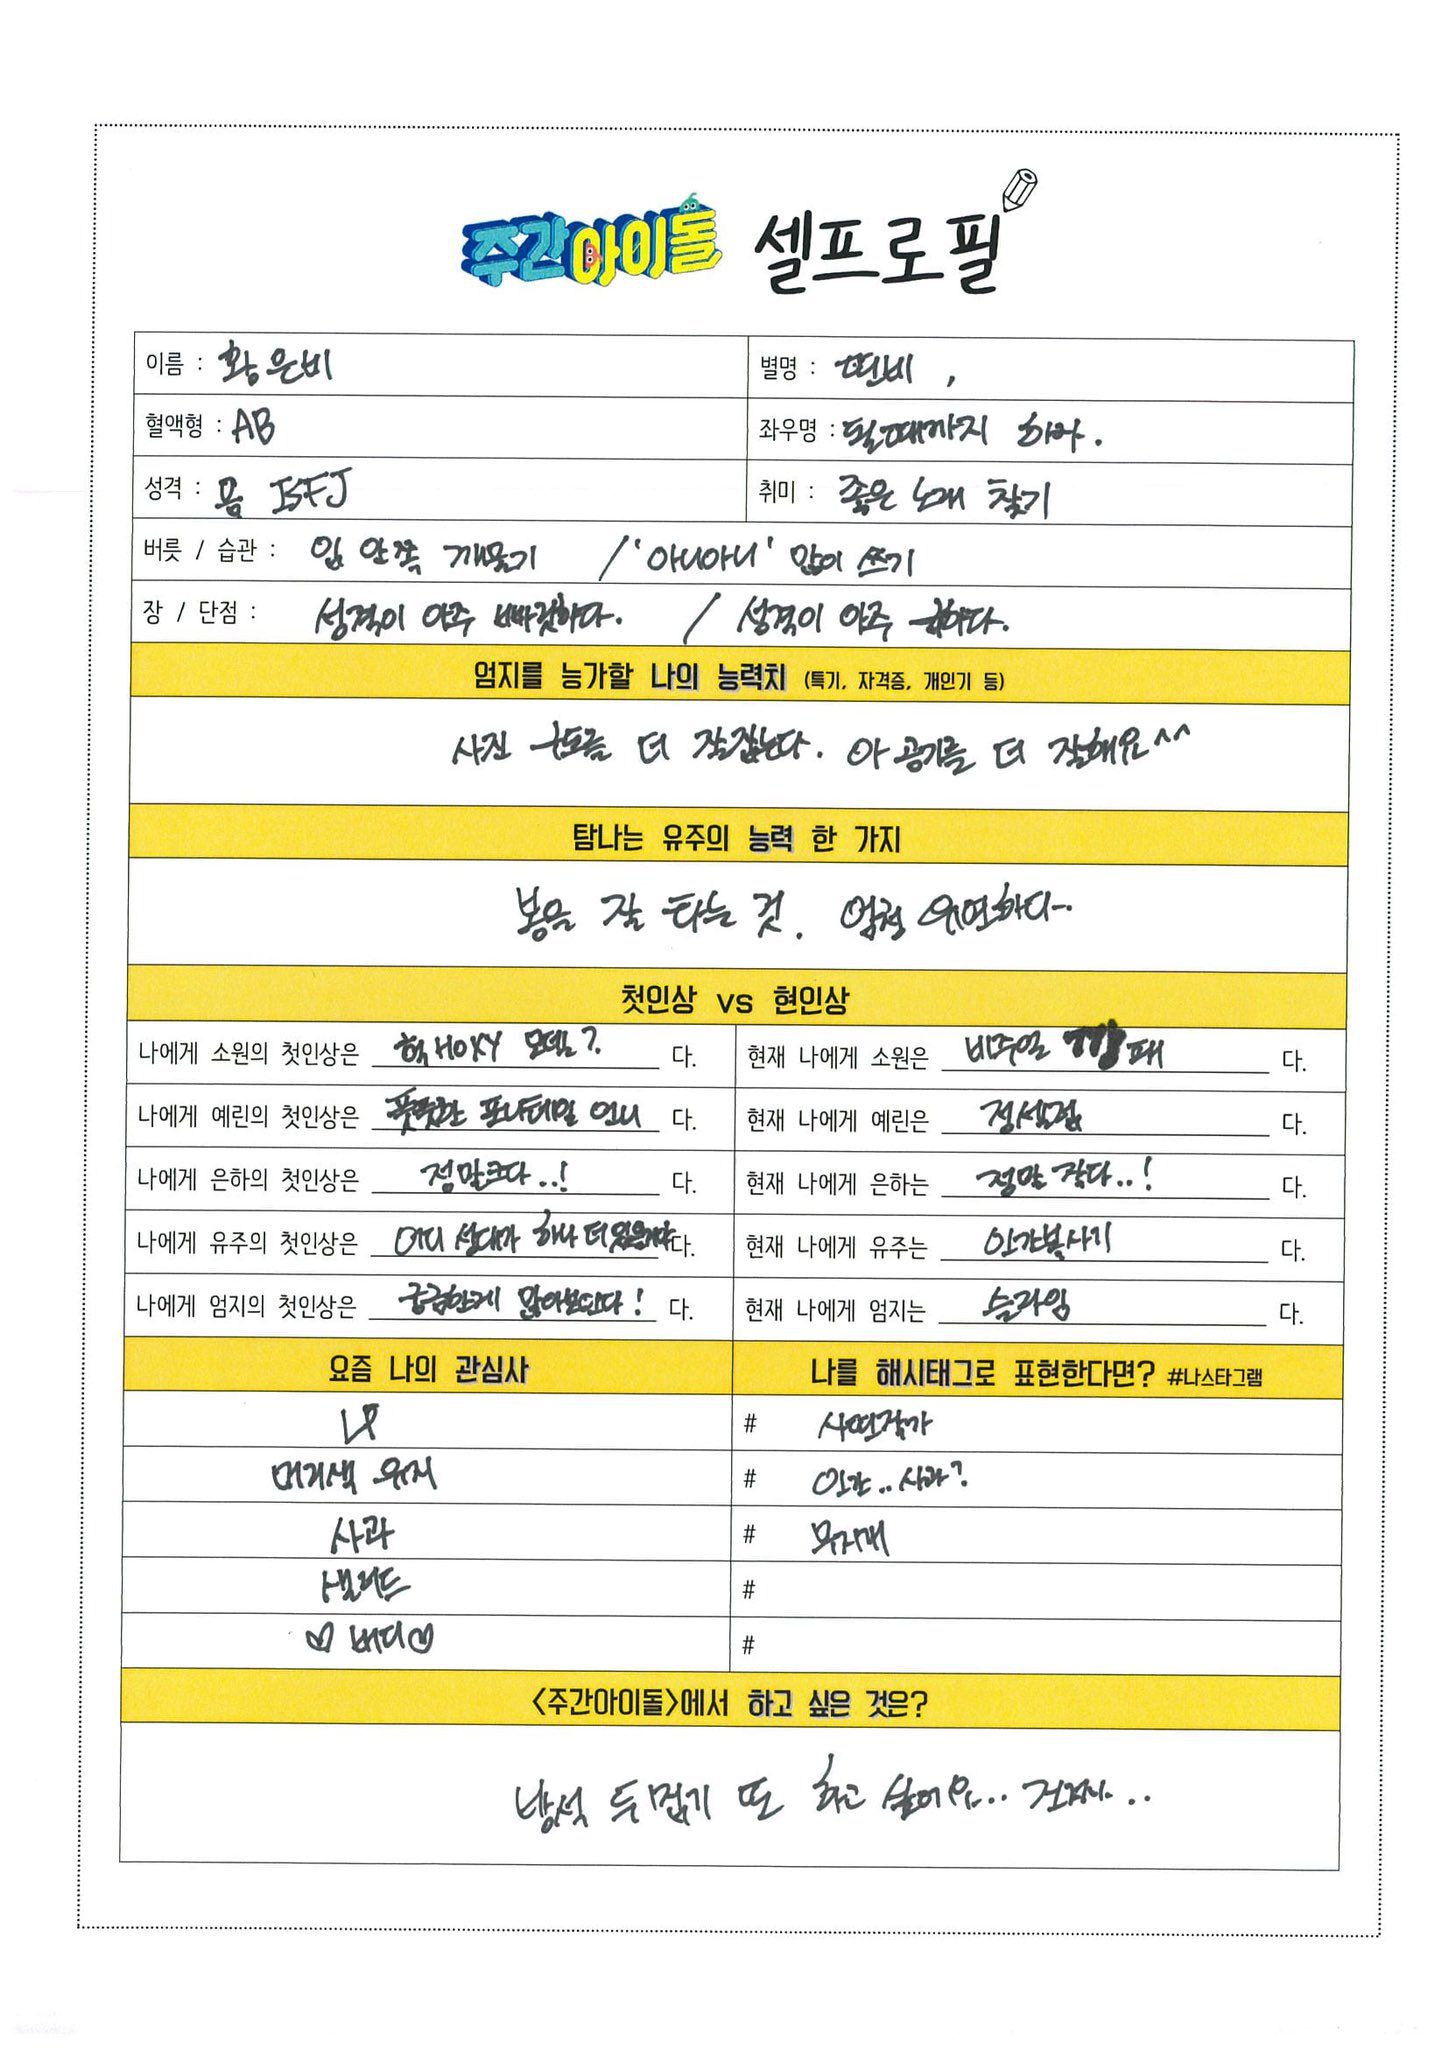 주간아이돌 셀프로필
이름 : 황은비
별명 : 띤비 ,
혈액형 : AB
좌우명 : 될때까지 하자.
성격 : 몸 ISFJ
취미 : 좋은 노래 찾기
버릇 / 습관 : 입 안쪽 깨물기 / '아니아니' 많이 쓰기
장 / 단점 : 성격이 아주 빠릿하다. / 성격이 아주 급하다.
엄지를 능가할 나의 능력치 (특기, 자격증, 개인기 등)
사진 구도를 더 잘잡는다. 아 공기를 더 잘해요^^
탐나는 유주의 능력 한 가지
봉을 잘 타는 것. 엄청 유연하다..
첫인상 vs 현인상
나에게 소원의 첫인상은 헉 HOXY 모델?. 다.
현재 나에게 소원은 비주얼 깡패 다.
나에게 예린의 첫인상은 풋풋한 포니테일 언니 다.
현재 나에게 예린은 정세젤 다.
나에게 은하의 첫인상은 정말크다..! 다.
현재 나에게 은하는 정말 작다..! 다.
나에게 유주의 첫인상은 어디 성대가 하나 더 있을까 다.
현재 나에게 유주는 인간복사기 다.
나에게 엄지의 첫인상은 궁금한게 많아보인다! 다.
현재 나에게 엄지는 슬라임 다.
요즘 나의 관심사
나를 해시태그로 표현한다면? #나스타그램
LP
# 사떤작가
머리색 유지
# 인간..사과?
사과
# 무지개
샐러드
#
♡ 버디♡
#
<주간아이돌>에서 하고 싶은 것은?
방석 두 뒤집기 또 하고 싶어요..